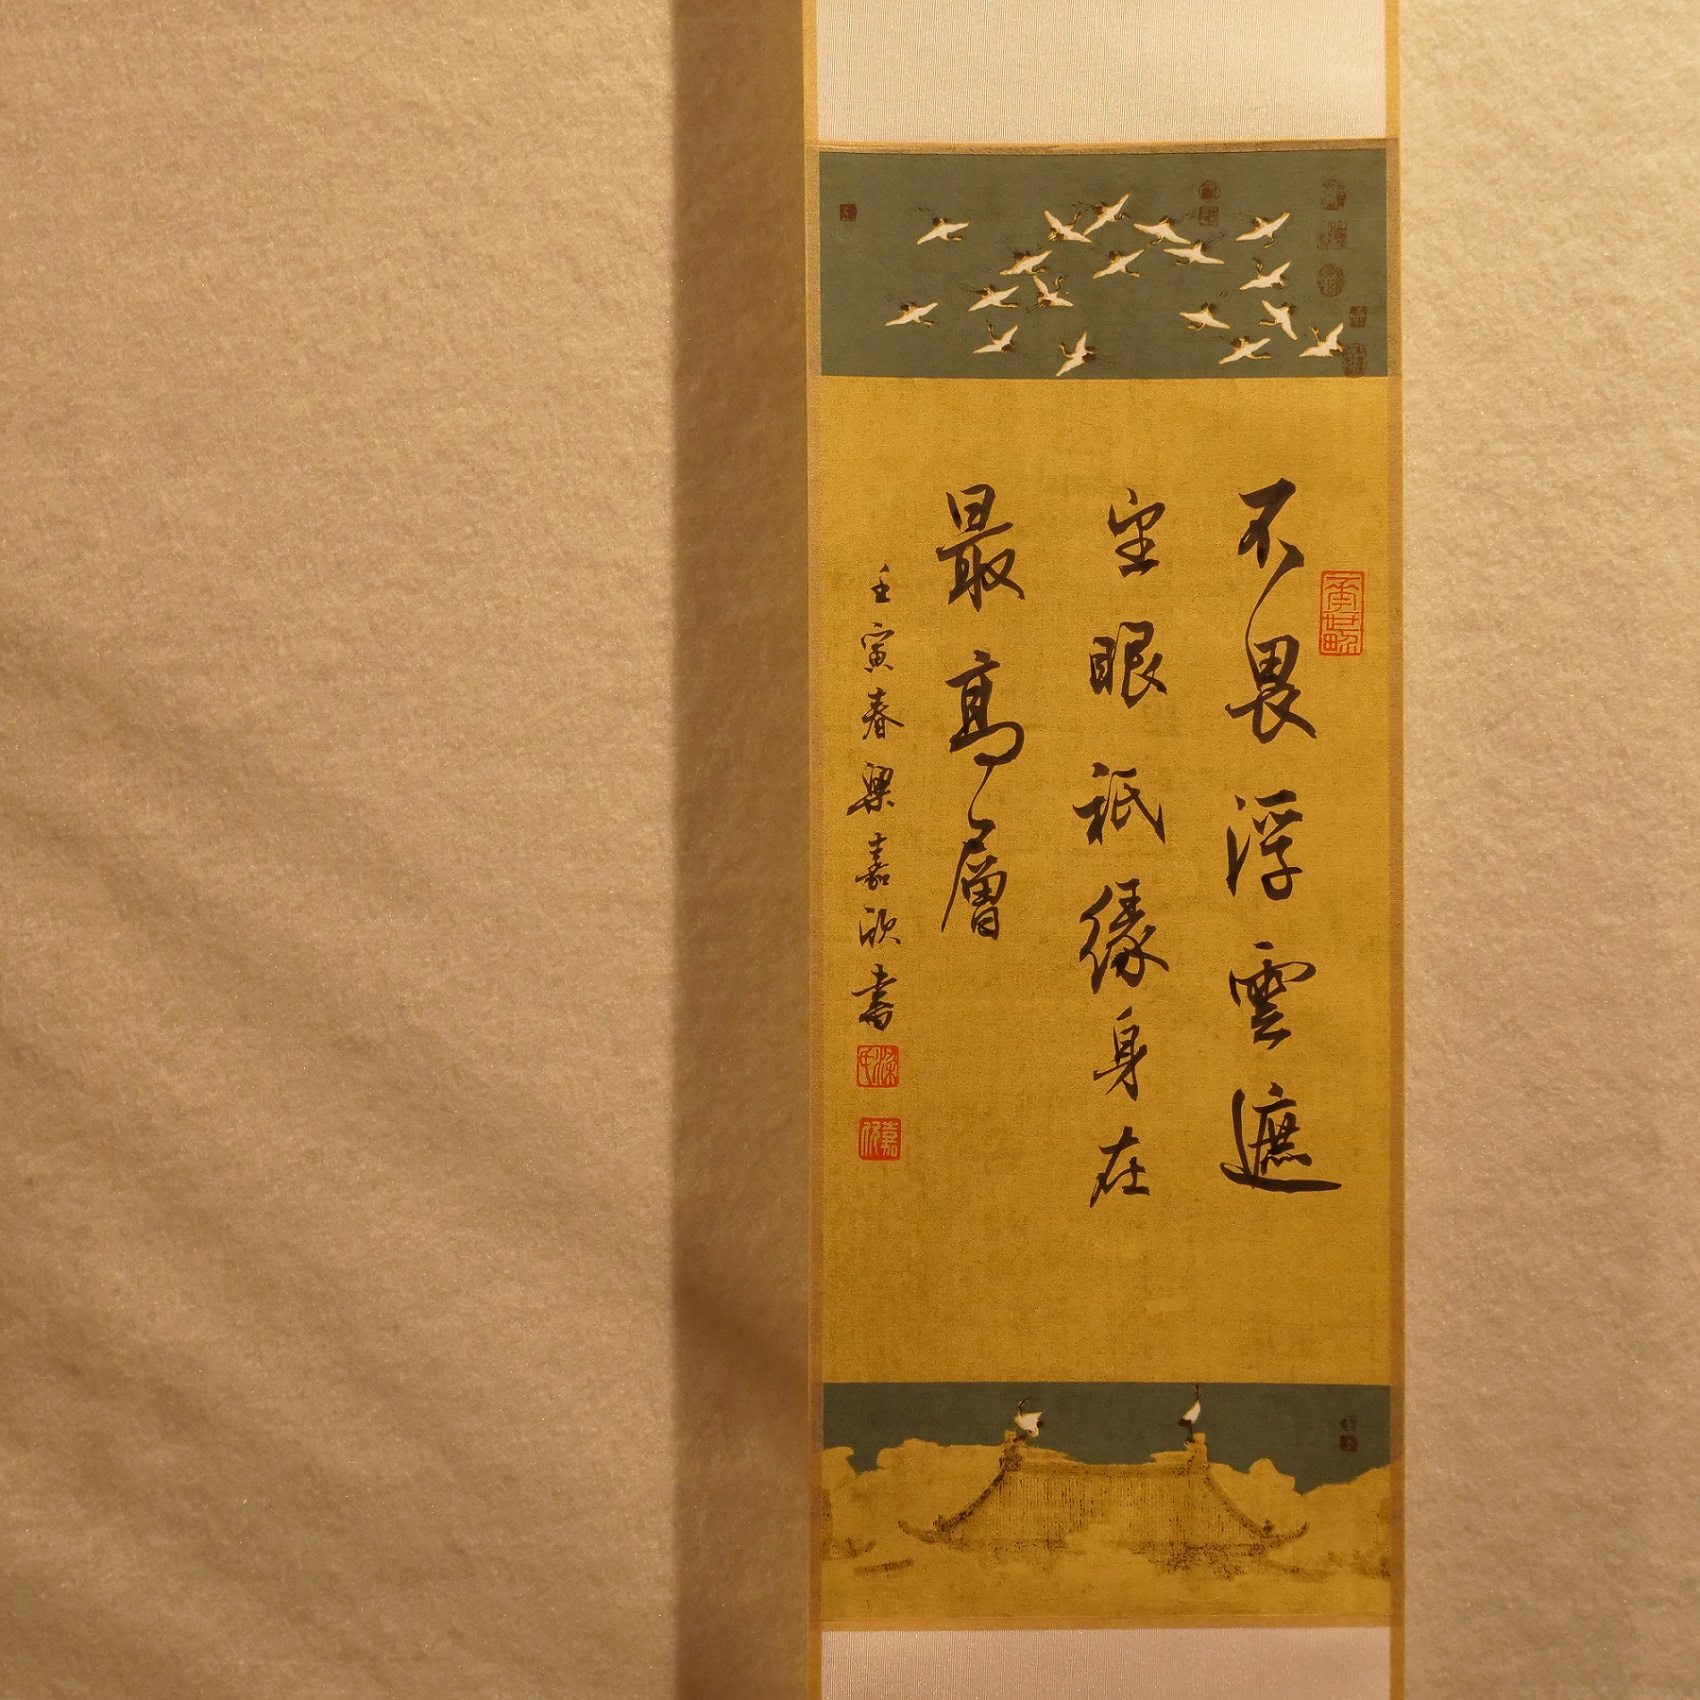 不畏浮雲遮
望眼祇緣身在
最高層
壬寅春梁嘉欣書